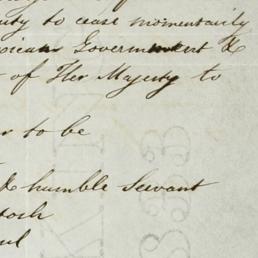 uty to cease momentarily
exican Government &
of Her Majesty to
r to be
& humble Servant
tosh
ul